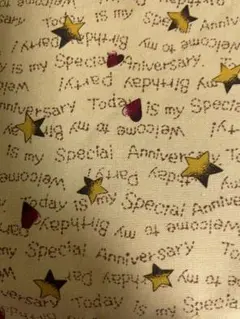 is my Special
Welcome to my Birthday
Party!
Anniversary Today is my
Welcome to my Birthday Party!
is my Special Anniversary
Welcome to my Birthday
Party!
Anniversary Today is my Special
Welcome to my Birthday Party!
is my Special Anniversary
Welcome to my Birthday
Party!
Special Anniversary
Birthday Party!
Today is my